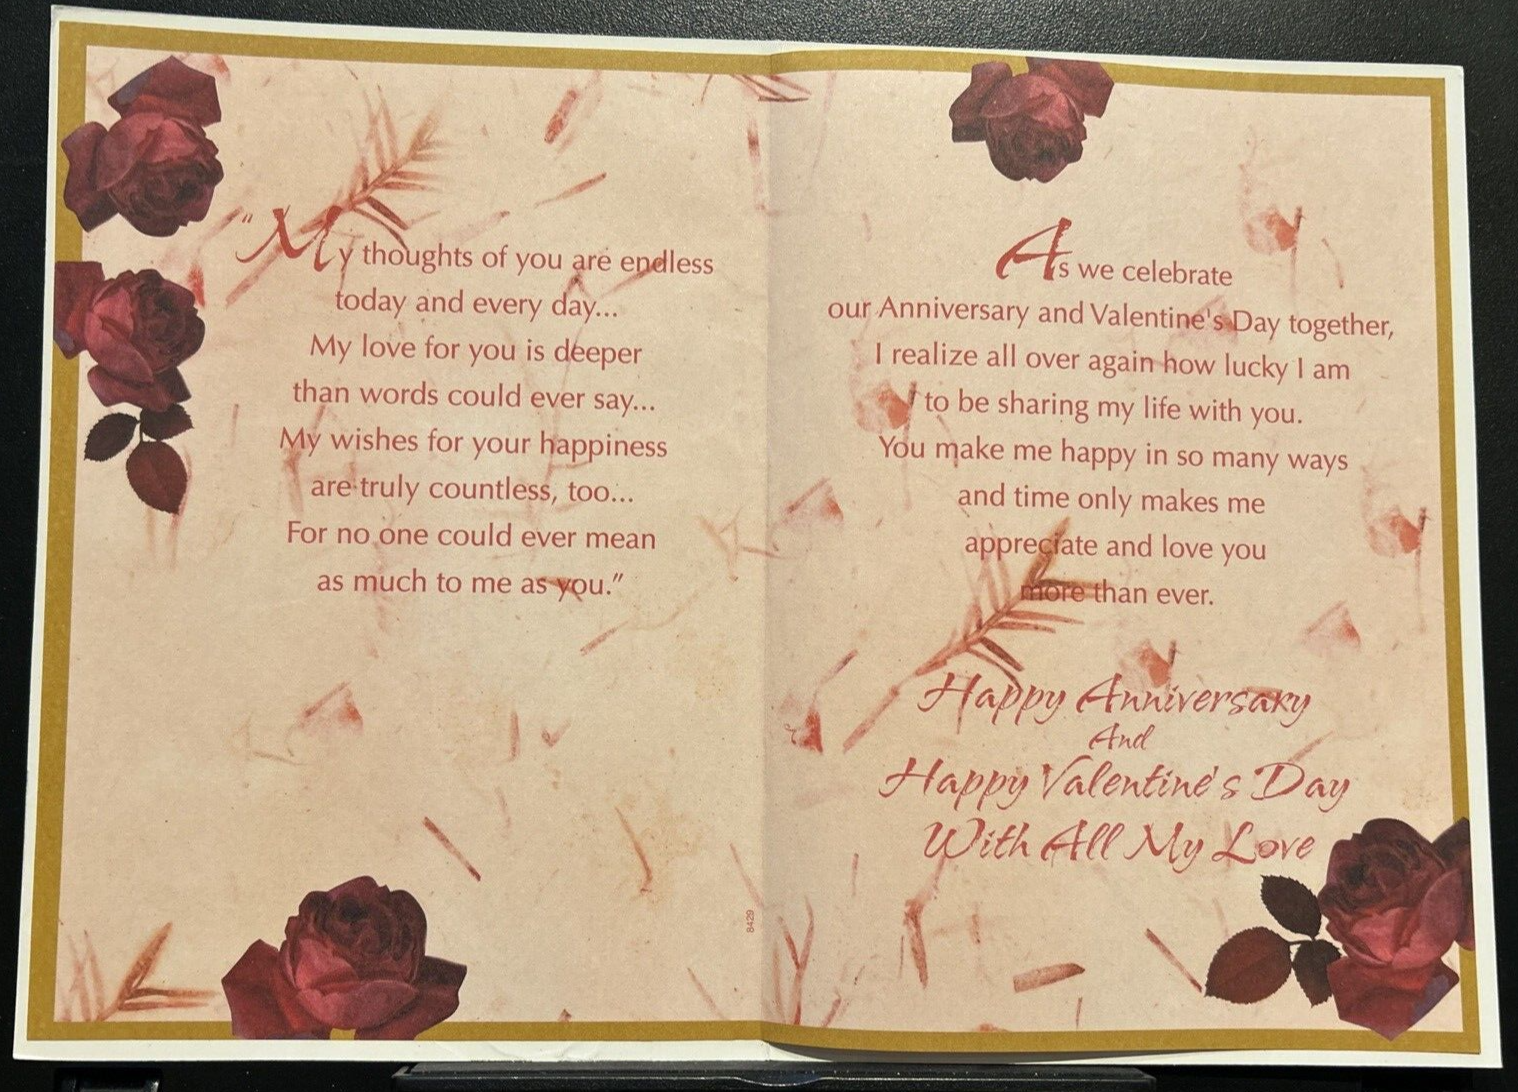 "My thoughts of you are endless
today and every day...
My love for you is deeper
than words could ever say...
My wishes for your happiness
are truly countless, too...
For no one could ever mean
as much to me as you."
8429
As we celebrate
our Anniversary and Valentine's Day together,
I realize all over again how lucky I am
to be sharing my life with you.
You make me happy in so many ways
and time only makes me
appreciate and love you
more than ever.
Happy Anniversary
And
Happy Valentine's Day
With All My Love